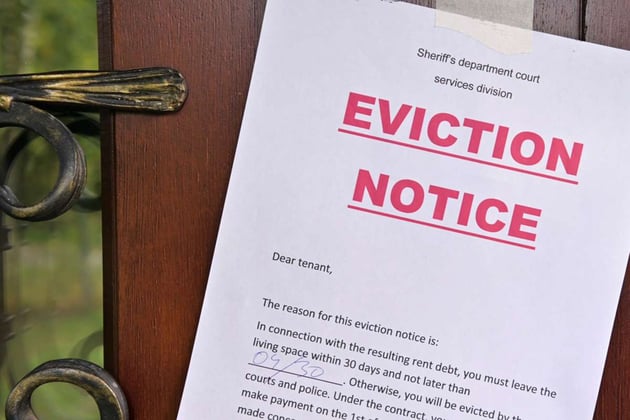 Sheriff's department court
services division
EVICTION
NOTICE
Dear tenant,
The reason for this eviction notice is:
In connection with the resulting rent debt, you must leave the
living space within 30 days and not later than
09/30. Otherwise, you will be evicted by the
courts and police. Under the contract, you
make payment on the 1st of
made